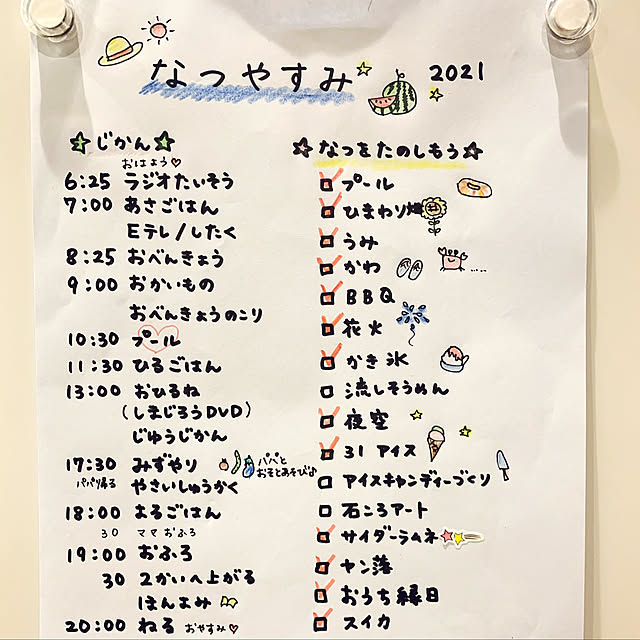 なつやすみ 2021
じかん
おはよう
6:25 ラジオたいそう
7:00 あさごはん
Eテレ/したく
8:25 おべんきょう
9:00 おかいもの
おべんきょうのこり
10:30 プール
11:30 ひるごはん
13:00 おひるね
(しまじろうDVD)
じゆうじかん
17:30 みずやり
パパとおそとあそび♪
パパ帰る やさいしゅうかく
18:00 よるごはん
30 ママ おふろ
19:00 おふろ
30 2かいへ上がる
ほんよみ
20:00 ねる おやすみ
なつをたのしもう
プール
ひまわり畑
うみ
かわ
BBQ
花火
かき氷
流しそうめん
夜空
31 アイス
アイスキャンディーづくり
石ころアート
サイダーラムネ
ヤン落
おうち縁日
スイカ